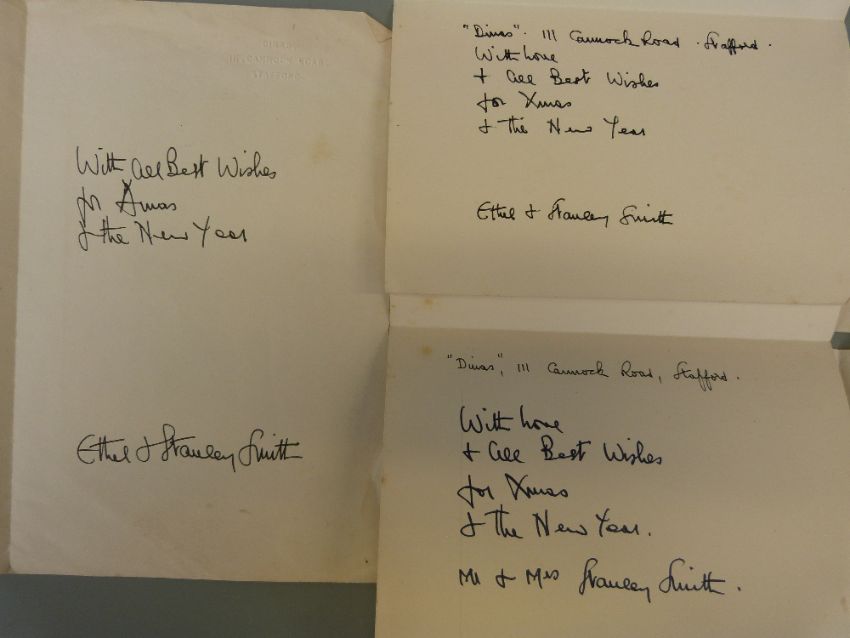 DINAS
111, CANNOCK ROAD,
STAFFORD.
With all Best Wishes
for Xmas
& the New Year
Ethel & Stanley Smith
"Dinas". 111 Cannock Road. Stafford.
With love
& all Best Wishes
for Xmas
& the New Year
Ethel & Stanley Smith
"Dinas", 111 Cannock Road, Stafford.
With love
& all Best Wishes
for Xmas
& the New Year.
Mr & Mrs Stanley Smith.